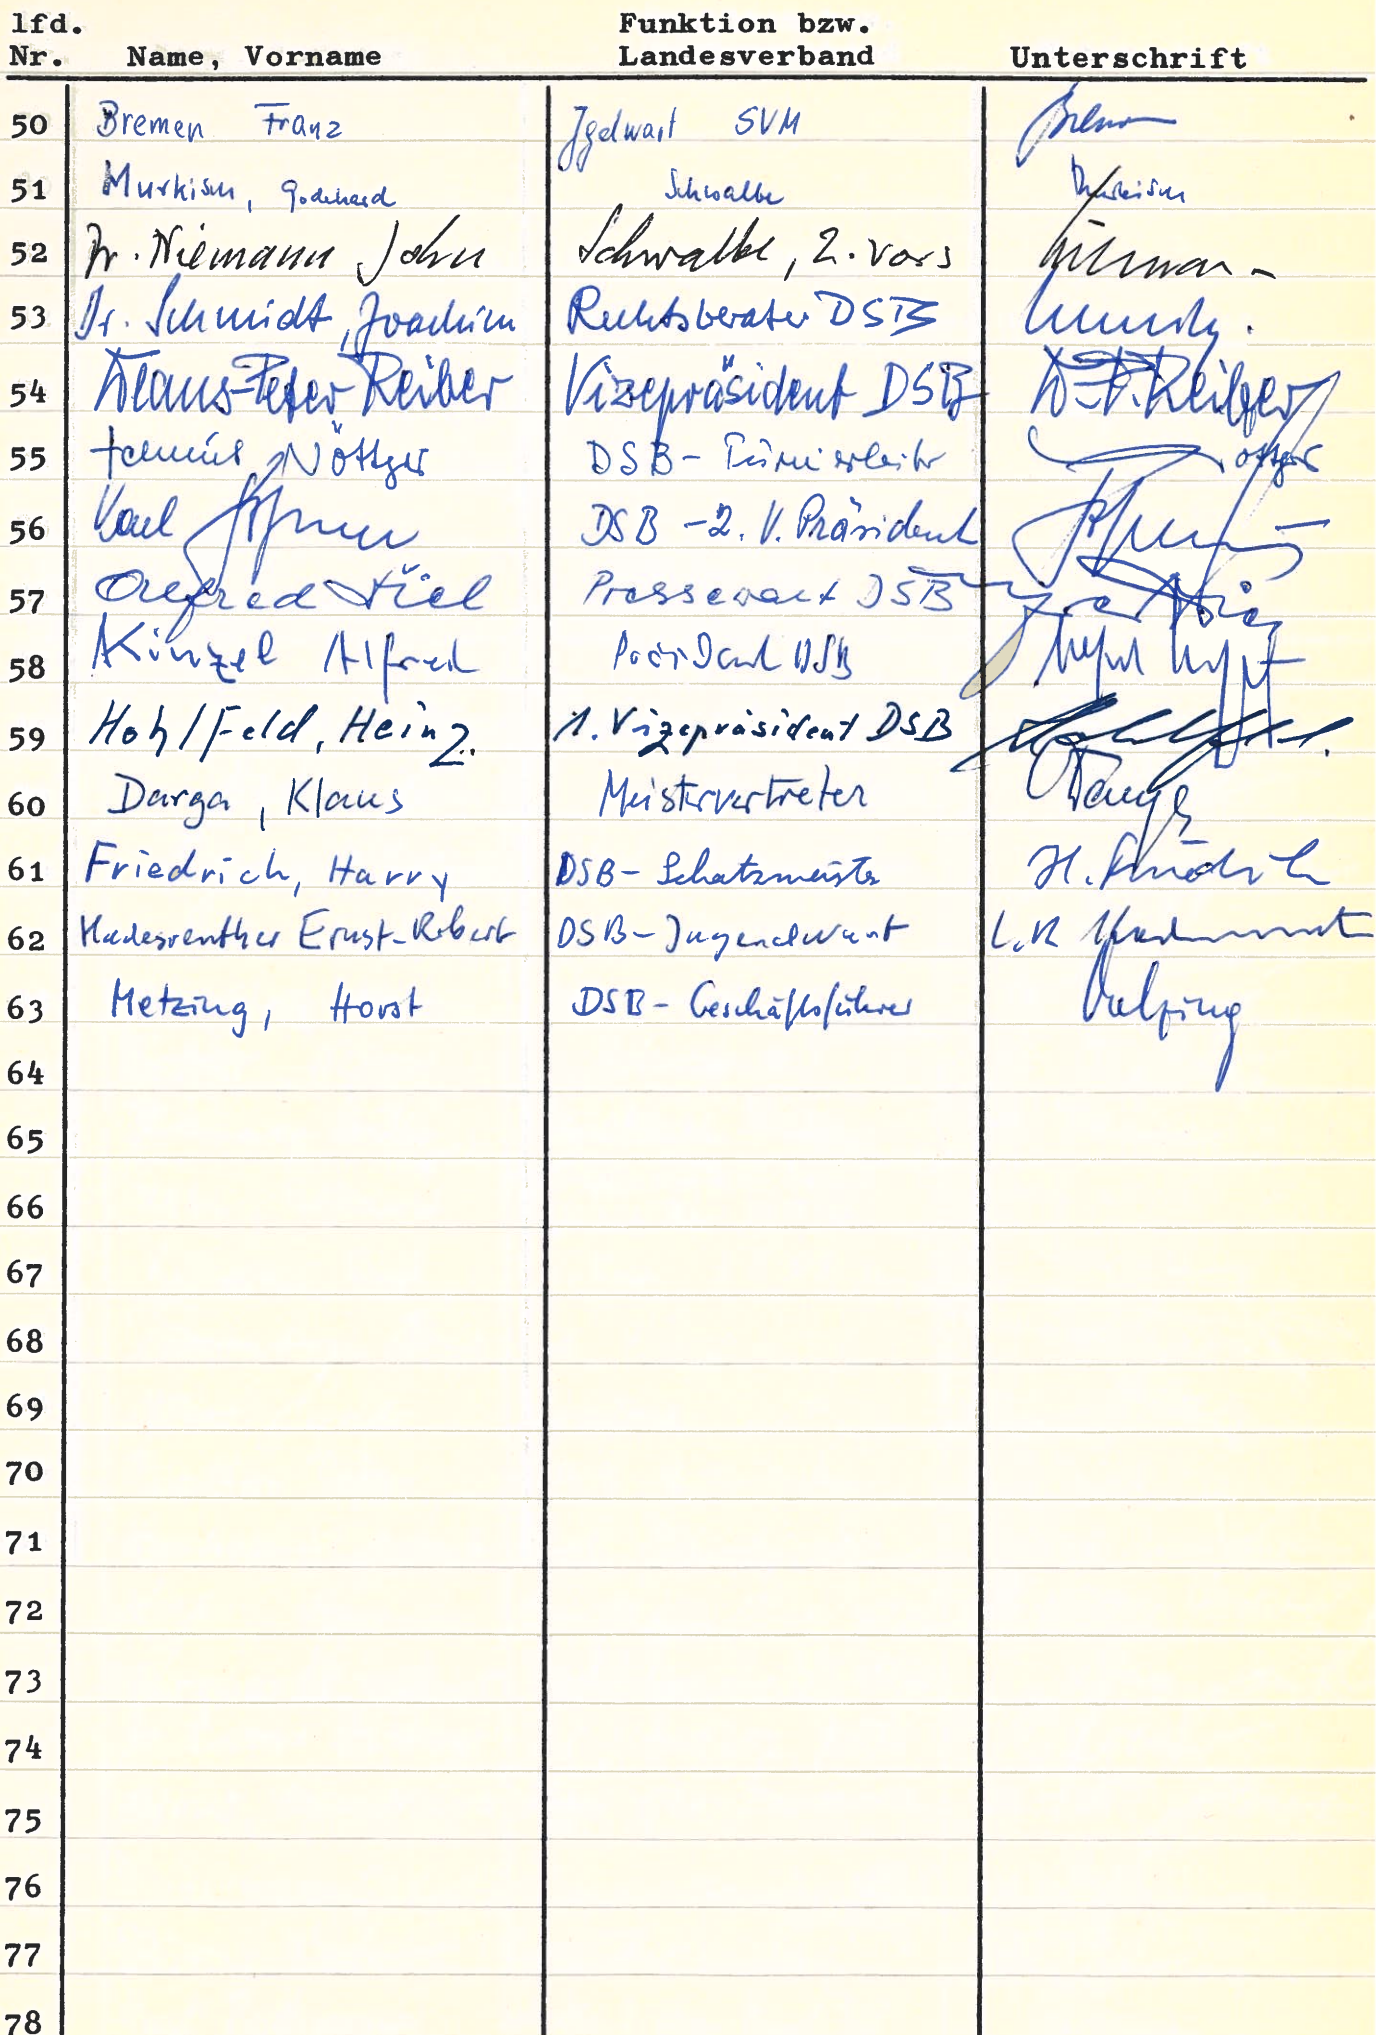 lfd. Funktion bzw.
Nr. Name, Vorname Landesverband Unterschrift
50 Bremen Franz Jgdwart SVM
51 Murkisch, Godehard Schwalbe Murkisch
52 Dr. Niemann John Schwalbe, 2. Vors Niemann
53 Dr. Schmidt, Joachim Rechtsberater DSB
54 Klaus-Peter Reiber Vizepräsident DSB K-P. Reiber
55 Helmut Nöttger DSB - Turnierleiter Nöttger
56 Karl DSB - 2. V. Präsident
57 Alfred Diel Pressewart DSB
58 Kinzel Alfred Präsident DSB
59 Hohlfeld, Heinz. 1. Vizepräsident DSB Hohlfeld.
60 Darga, Klaus Meistervertreter Darga
61 Friedrich, Harry DSB - Schatzmeister H. Friedrich
62 Madesreuther Ernst-Robert DSB - Jugendwart
63 Metzing, Horst DSB - Geschäftsführer Metzing
64
65
66
67
68
69
70
71
72
73
74
75
76
77
78